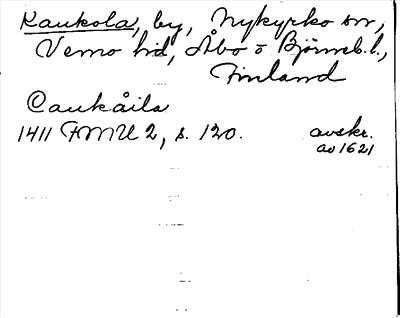 Kaukola, by, Nykyrko sn,
Vemo hd, Åbo o Björneb. l.,
Finland
Caukåila
1411 FMU 2, s. 120. avskr.
av 1621